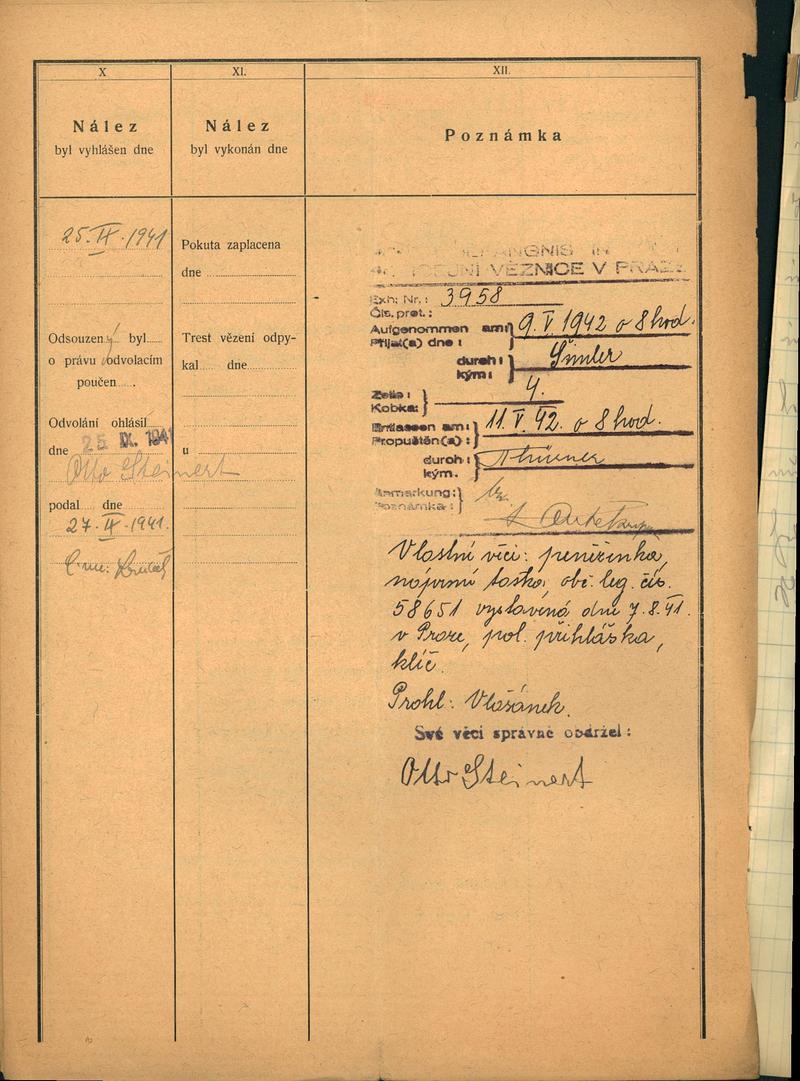 X
Nález
byl vyhlášen dne
25. IX. 1941
Odsouzený byl
o právu odvolacím
poučen
Odvolání ohlásil
dne 25 IX. 1941
Otto Steinert
podal dne
27. IX. 1941.
XI.
Nález
byl vykonán dne
Pokuta zaplacena
dne
Trest vězení odpy-
kal dne
u
XII.
Poznámka
GEFÄNGNIS IN
VĚZNICE V PRAZE
Exh. Nr.: 3958
Čís. prot.:
Aufgenommen am: 9. V 1942 o 8 hod.
Přijat(a) dne:
durch: Šimler
kým:
Zelle: 4.
Kobka:
Entlassen am: 11. V. 42. o 8 hod.
Propuštěn(a):
durch:
kým.
Anmerkung:
Poznámka:
Vlastní věci: peněženka,
náprsní taška, obč. leg. čís.
58651 vystavená dne 7.8.41.
v Praze, pol. přihláška,
klíč.
Prohl.: Vlašánek.
Své věci správně obdržel:
Otto Steinert